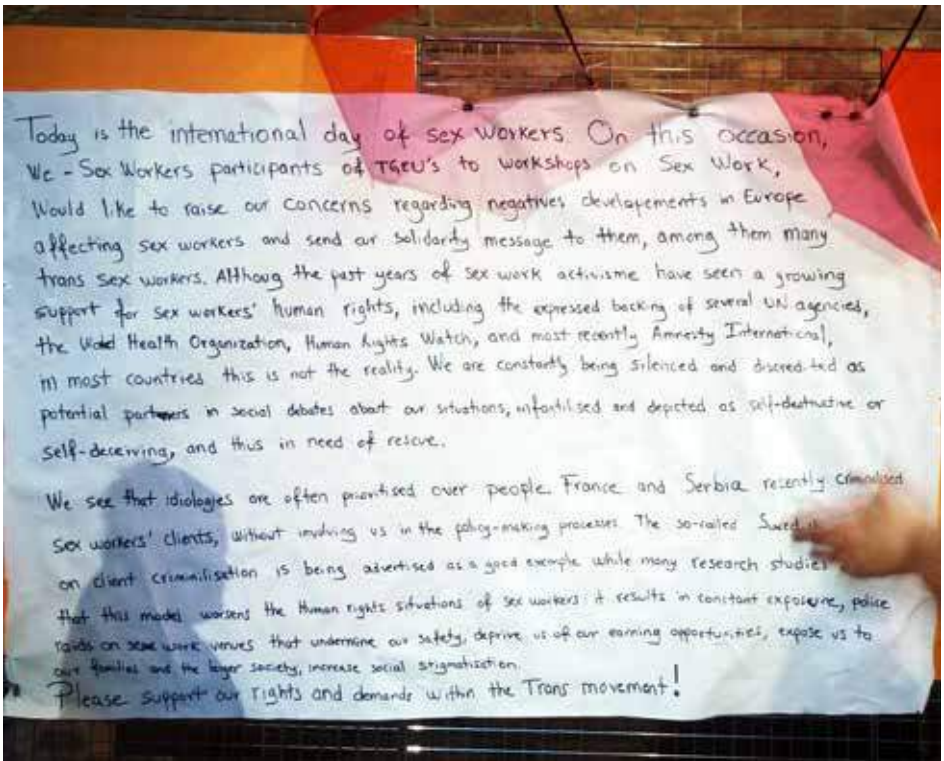 Today is the international day of sex workers. On this occasion,
We - Sex Workers participants of TGEU's to workshops on Sex Work,
Would like to raise our concerns regarding negatives developements in Europe
affecting sex workers and send our solidarity message to them, among them many
trans sex workers. Althoug the past years of sex work activisme have seen a growing
support for sex workers' human rights, including the expressed backing of several UN agencies,
the World Health Organization, Human Rights Watch, and most recently Amnesty International,
in most countries this is not the reality. We are constantly being silenced and discredited as
potential partners in social debates about our situations, infantilised and depicted as self-destructive or
self-deceiving, and thus in need of rescue.
We see that idiologies are often prioritised over people. France and Serbia recently criminalised
sex workers' clients, without involving us in the policy-making processes. The so-called
on client criminilisation is being advertised as a good exemple while many research studies
that this model worsens the Human rights situations of sex workers: it results in constant exposure, police
raids on sex work venues that undermine our safety, deprive us of our earning opportunities, expose us to
our families and the larger society, increase social stigmatisation.
Please support our rights and demands within the Trans movement!